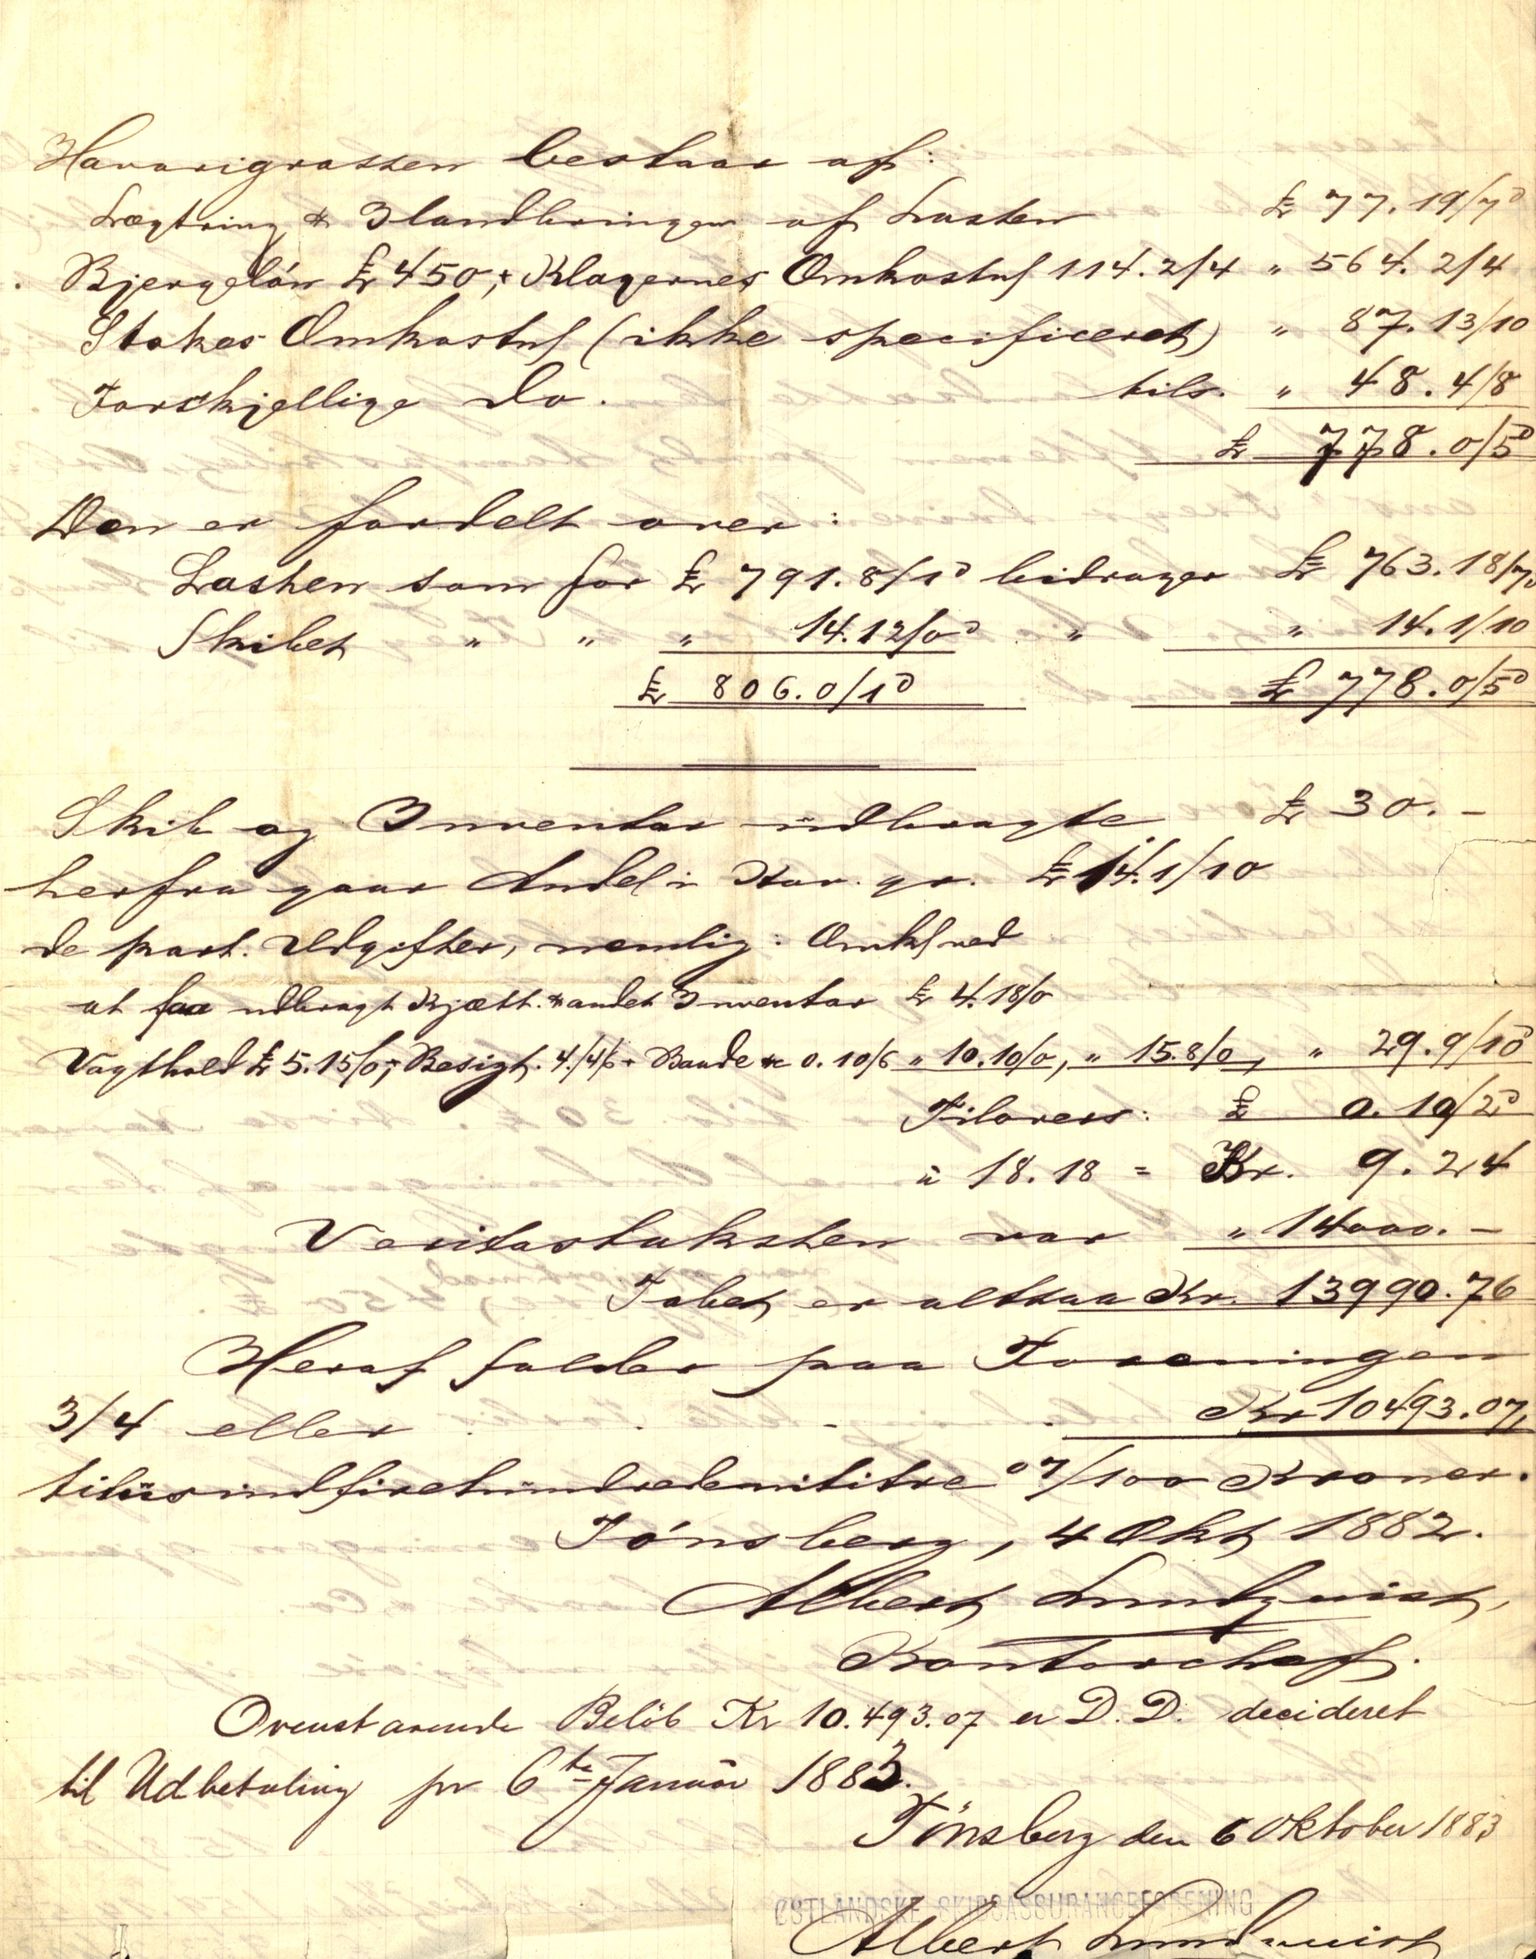 Havarigrossen bestaar af:
Lægtring & Ilandbringen af Lasten £ 77.19/7ᴰ
Bjergelón £ 450, + Klagernes Omkostn 114.2/4 " 564. 2/4
Stokes Omkostn (ikke specificeret) " 87.13/10
Forskjellige do. tils. " 48.4/8
£ 778.0/5ᴰ
Den er fordelt over:
Lasten som for £ 791.8/1ᴰ bidrager £ 763.18/7ᴰ
Skibet " " " 14.12/0ᴰ " " 14.1/10
£ 806.0/1ᴰ £ 778.0/5ᴰ
Skib og Inventar udbragte £ 30. -
herfra gaar Andel i Hav. gr. £ 14.1/10
de part. Udgifter, nemlig: Omk ved
at faa udbragt Kjætt. & andet Inventar £ 4.18/0
Vagthold £ 5.15/0, + Besigt. 4./4/6 + Baade & 0.10/6 " 10.10/0, " 15.8/0, " 29.9/10
Tilovers: £ 0.10/2ᴰ
à 18.18 = Kr. 9.24
Veritastaksten var " 14000. -
Tabet er altsaa Kr. 13990.76
Heraf falder paa Foreningen
3/4 eller Kr 10493.07,
titusindfirehundredenititre 07/100 Kroner.
Tónsberg, 4 Okt 1882.
Albert Lundqvist,
Kontorchef.
Ovenstaaende Belöb Kr 10.493.07 er D. D. decideret
til Udbetaling pr 6te Januar 1883.
Tönsberg den 6 Oktober 1883
ØSTLANDSKE SKIBSASSURANCEFORENING
Albert Lundqvist